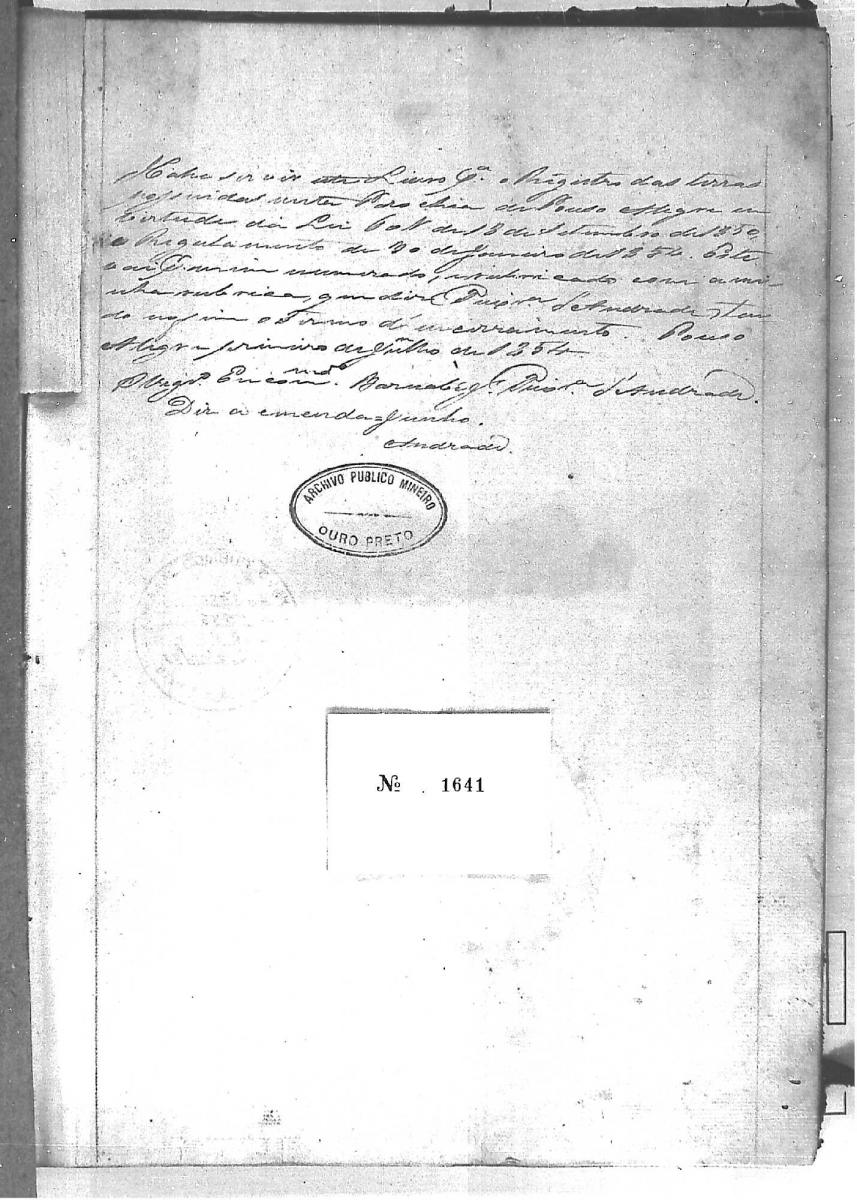 Hade servir este Livro pª. o Registro das terras
possuidas nesta Parochia de Pouso Alegre em
Virtude da Lei 601 de 18 de Setembro de 1850,
e Regulamento de 30 de Janeiro de 1854. Este
vai numerado, e rubricado com a mi-
nha rubrica, que diz Teixrª d'Andrade, tan-
do no fim o Termo de incerramento. Pouso
Alegre primeiro de Julho de 1854
O Vigrº. Encommdº. Barnabé Jº. Teixrª d'Andrade.
Diz a emenda = Junho.
Andrade.
ARCHIVO PUBLICO MINEIRO
OURO PRETO
Nº. 1641